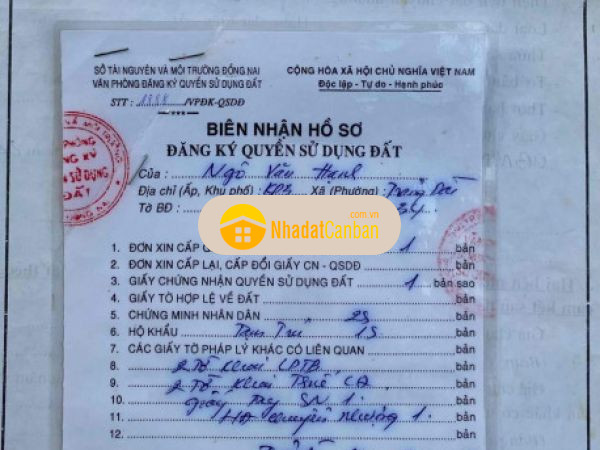 SỞ TÀI NGUYÊN VÀ MÔI TRƯỜNG ĐỒNG NAI
VĂN PHÒNG ĐĂNG KÝ QUYỀN SỬ DỤNG ĐẤT
STT : /VPĐK-QSDĐ
CỘNG HÒA XÃ HỘI CHỦ NGHĨA VIỆT NAM
Độc lập - Tự do - Hạnh phúc
BIÊN NHẬN HỒ SƠ
ĐĂNG KÝ QUYỀN SỬ DỤNG ĐẤT
Của : Ngô Văn Hanh
Địa chỉ (Ấp, Khu phố) : KP3 Xã (Phường) : Trảng Dài
Tờ BĐ : 34
NhadatCanban
.com.vn
1. ĐƠN XIN CẤP 1 bản
2. ĐƠN XIN CẤP LẠI, CẤP ĐỔI GIẤY CN - QSDĐ bản
3. GIẤY CHỨNG NHẬN QUYỀN SỬ DỤNG ĐẤT 1 bản sao
4. GIẤY TỜ HỢP LỆ VỀ ĐẤT bản
5. CHỨNG MINH NHÂN DÂN 2S bản
6. HỘ KHẨU Tạm Trú 1S bản
7. CÁC GIẤY TỜ PHÁP LÝ KHÁC CÓ LIÊN QUAN bản
8. 2 Tờ khai LPTB bản
9. 2 Tờ khai Thuế CQ bản
10. giấy tay SN 1. bản
11. HĐ chuyển nhượng 1. bản
12. bản